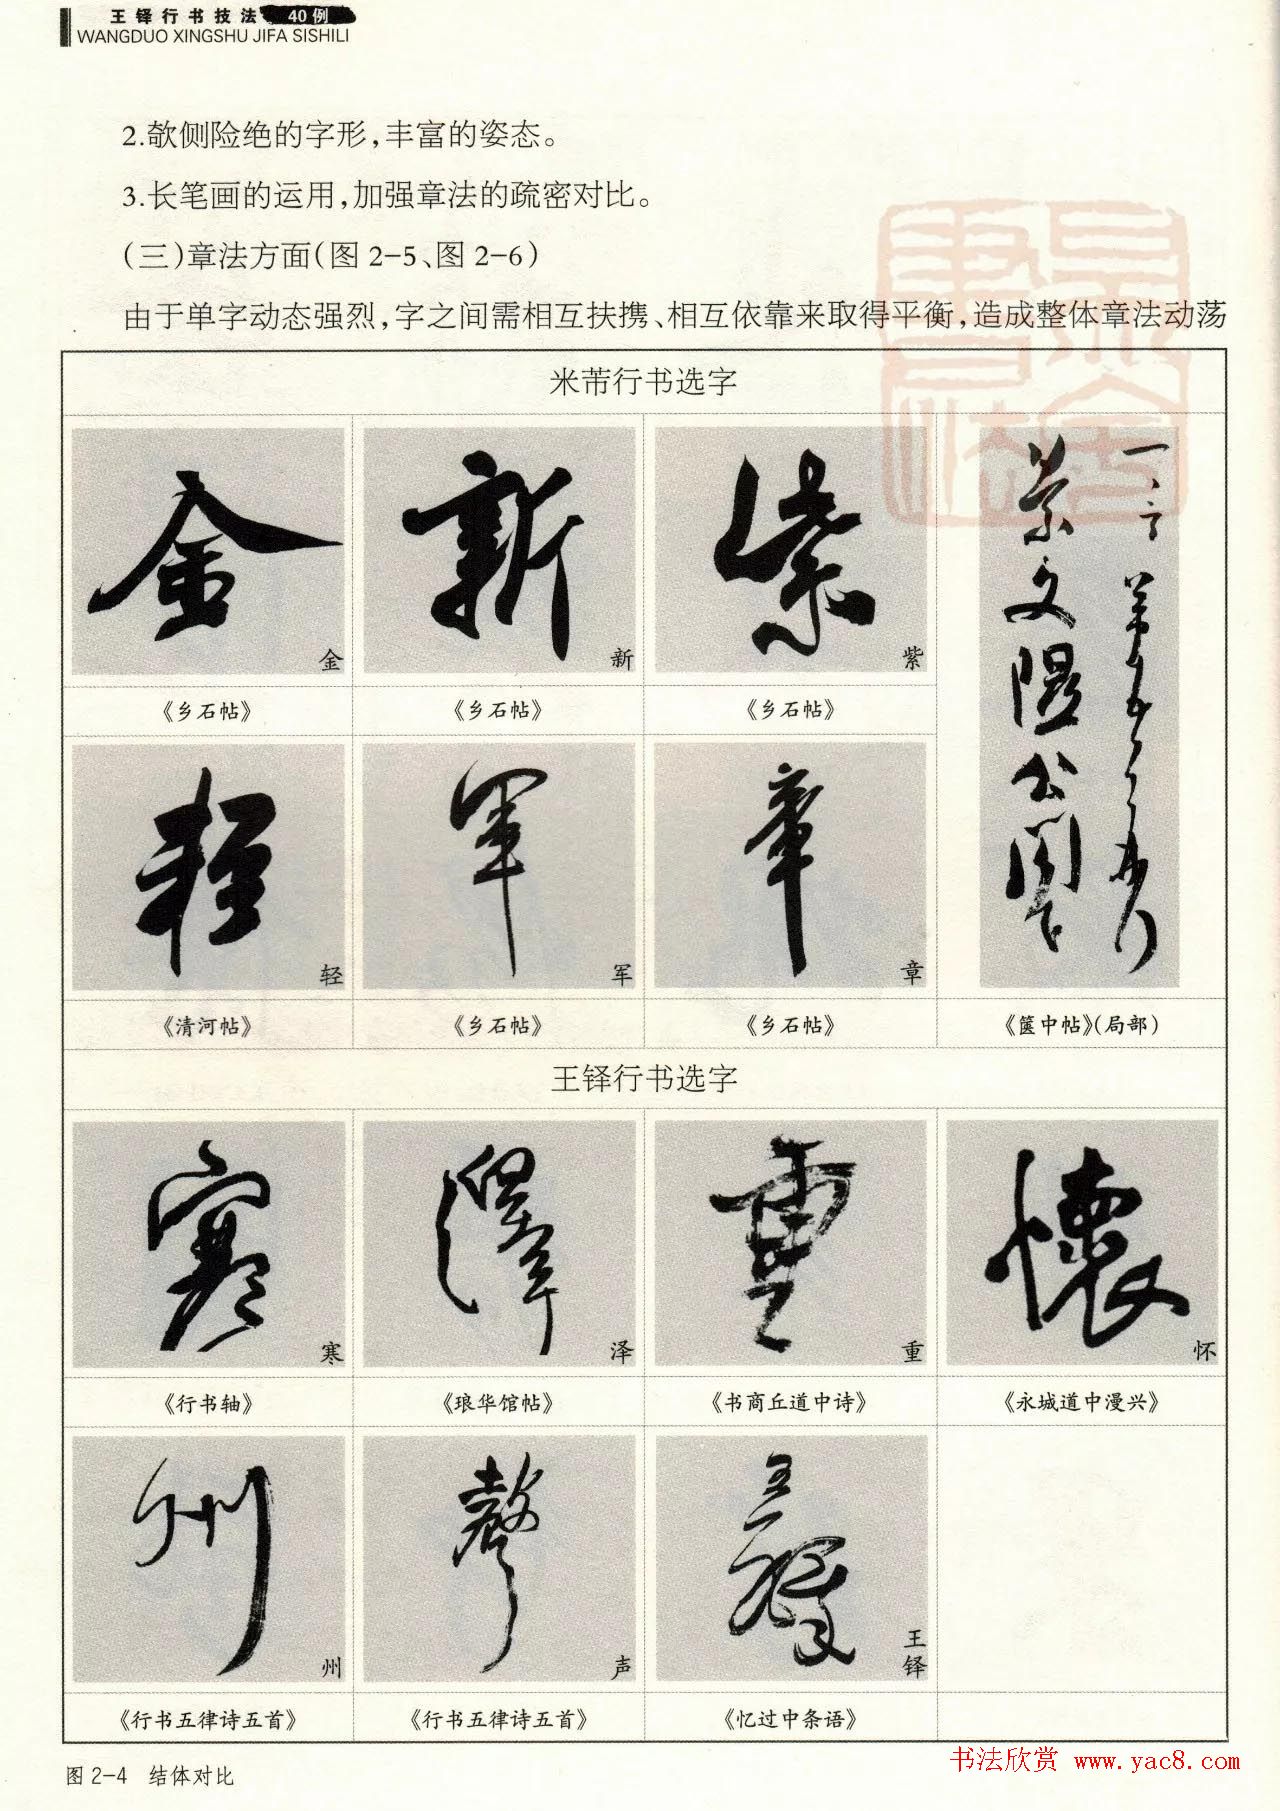 王铎行书技法 40例
WANGDUO XINGSHU JIFA SISHILI
2.欹侧险绝的字形，丰富的姿态。
3.长笔画的运用，加强章法的疏密对比。
（三）章法方面（图2-5、图2-6）
由于单字动态强烈，字之间需相互扶携、相互依靠来取得平衡，造成整体章法动荡
米芾行书选字
金 新 紫
金 新 紫
《乡石帖》 《乡石帖》 《乡石帖》
輕 軍 章
轻 军 章
《清河帖》 《乡石帖》 《乡石帖》 《箧中帖》（局部）
王铎行书选字
寒 澤 重 懷
寒 泽 重 怀
《行书轴》 《琅华馆帖》 《书商丘道中诗》 《永城道中漫兴》
州 聲 王鐸
州 声 王铎
《行书五律诗五首》 《行书五律诗五首》 《忆过中条语》
图2-4 结体对比
书法欣赏 www.yac8.com